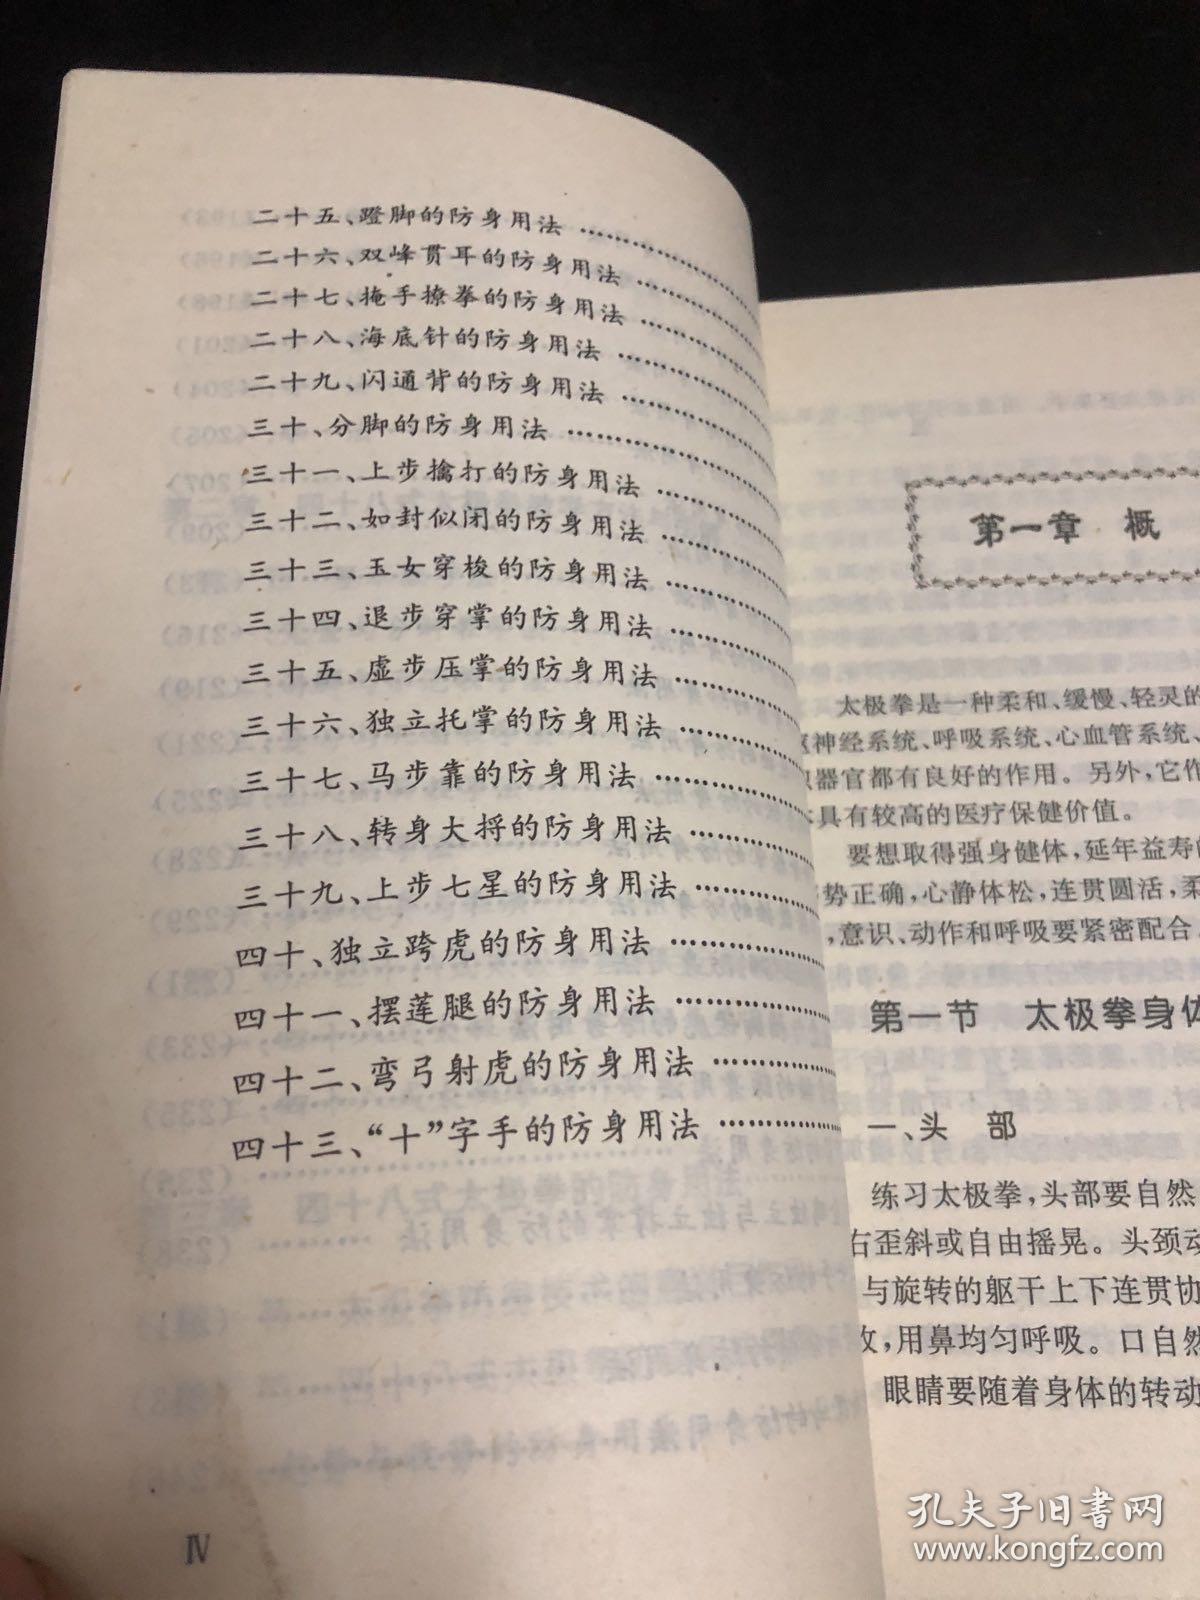 二十五、蹬脚的防身用法
二十六、双峰贯耳的防身用法
二十七、掩手撩拳的防身用法
二十八、海底针的防身用法
二十九、闪通背的防身用法
三十、分脚的防身用法
三十一、上步擒打的防身用法
三十二、如封似闭的防身用法
三十三、玉女穿梭的防身用法
三十四、退步穿掌的防身用法
三十五、虚步压掌的防身用法
三十六、独立托掌的防身用法
三十七、马步靠的防身用法
三十八、转身大捋的防身用法
三十九、上步七星的防身用法
四十、独立跨虎的防身用法
四十一、摆莲腿的防身用法
四十二、弯弓射虎的防身用法
四十三、“十”字手的防身用法
Ⅳ
第一章 概
太极拳是一种柔和、缓慢、轻灵的
神经系统、呼吸系统、心血管系统、
器官都有良好的作用。另外,它作
具有较高的医疗保健价值。
要想取得强身健体,延年益寿
势正确,心静体松,连贯圆活,柔
,意识、动作和呼吸要紧密配合
第一节 太极拳身体
一、头 部
练习太极拳,头部要自然
右歪斜或自由摇晃。头颈动
与旋转的躯干上下连贯协
,用鼻均匀呼吸。口自然
眼睛要随着身体的转动
孔夫子旧书网
www.kongfz.com